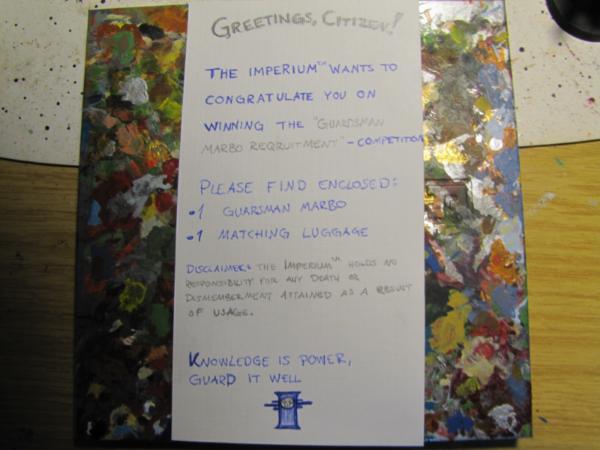 GREETINGS, CITIZEN!
THE IMPERIUM™ WANTS TO
CONGRATULATE YOU ON
WINNING THE "GUARDSMAN
MARBO REQRUITMENT"-COMPETITION
PLEASE FIND ENCLOSED:
•1 GUARSMAN MARBO
•1 MATCHING LUGGAGE
DISCLAIMER: THE IMPERIUM™ HOLDS NO
RESPONSIBILITY FOR ANY DEATH OR
DISMEMBERMENT ATTAINED AS A RESULT
OF USAGE.
KNOWLEDGE IS POWER,
GUARD IT WELL